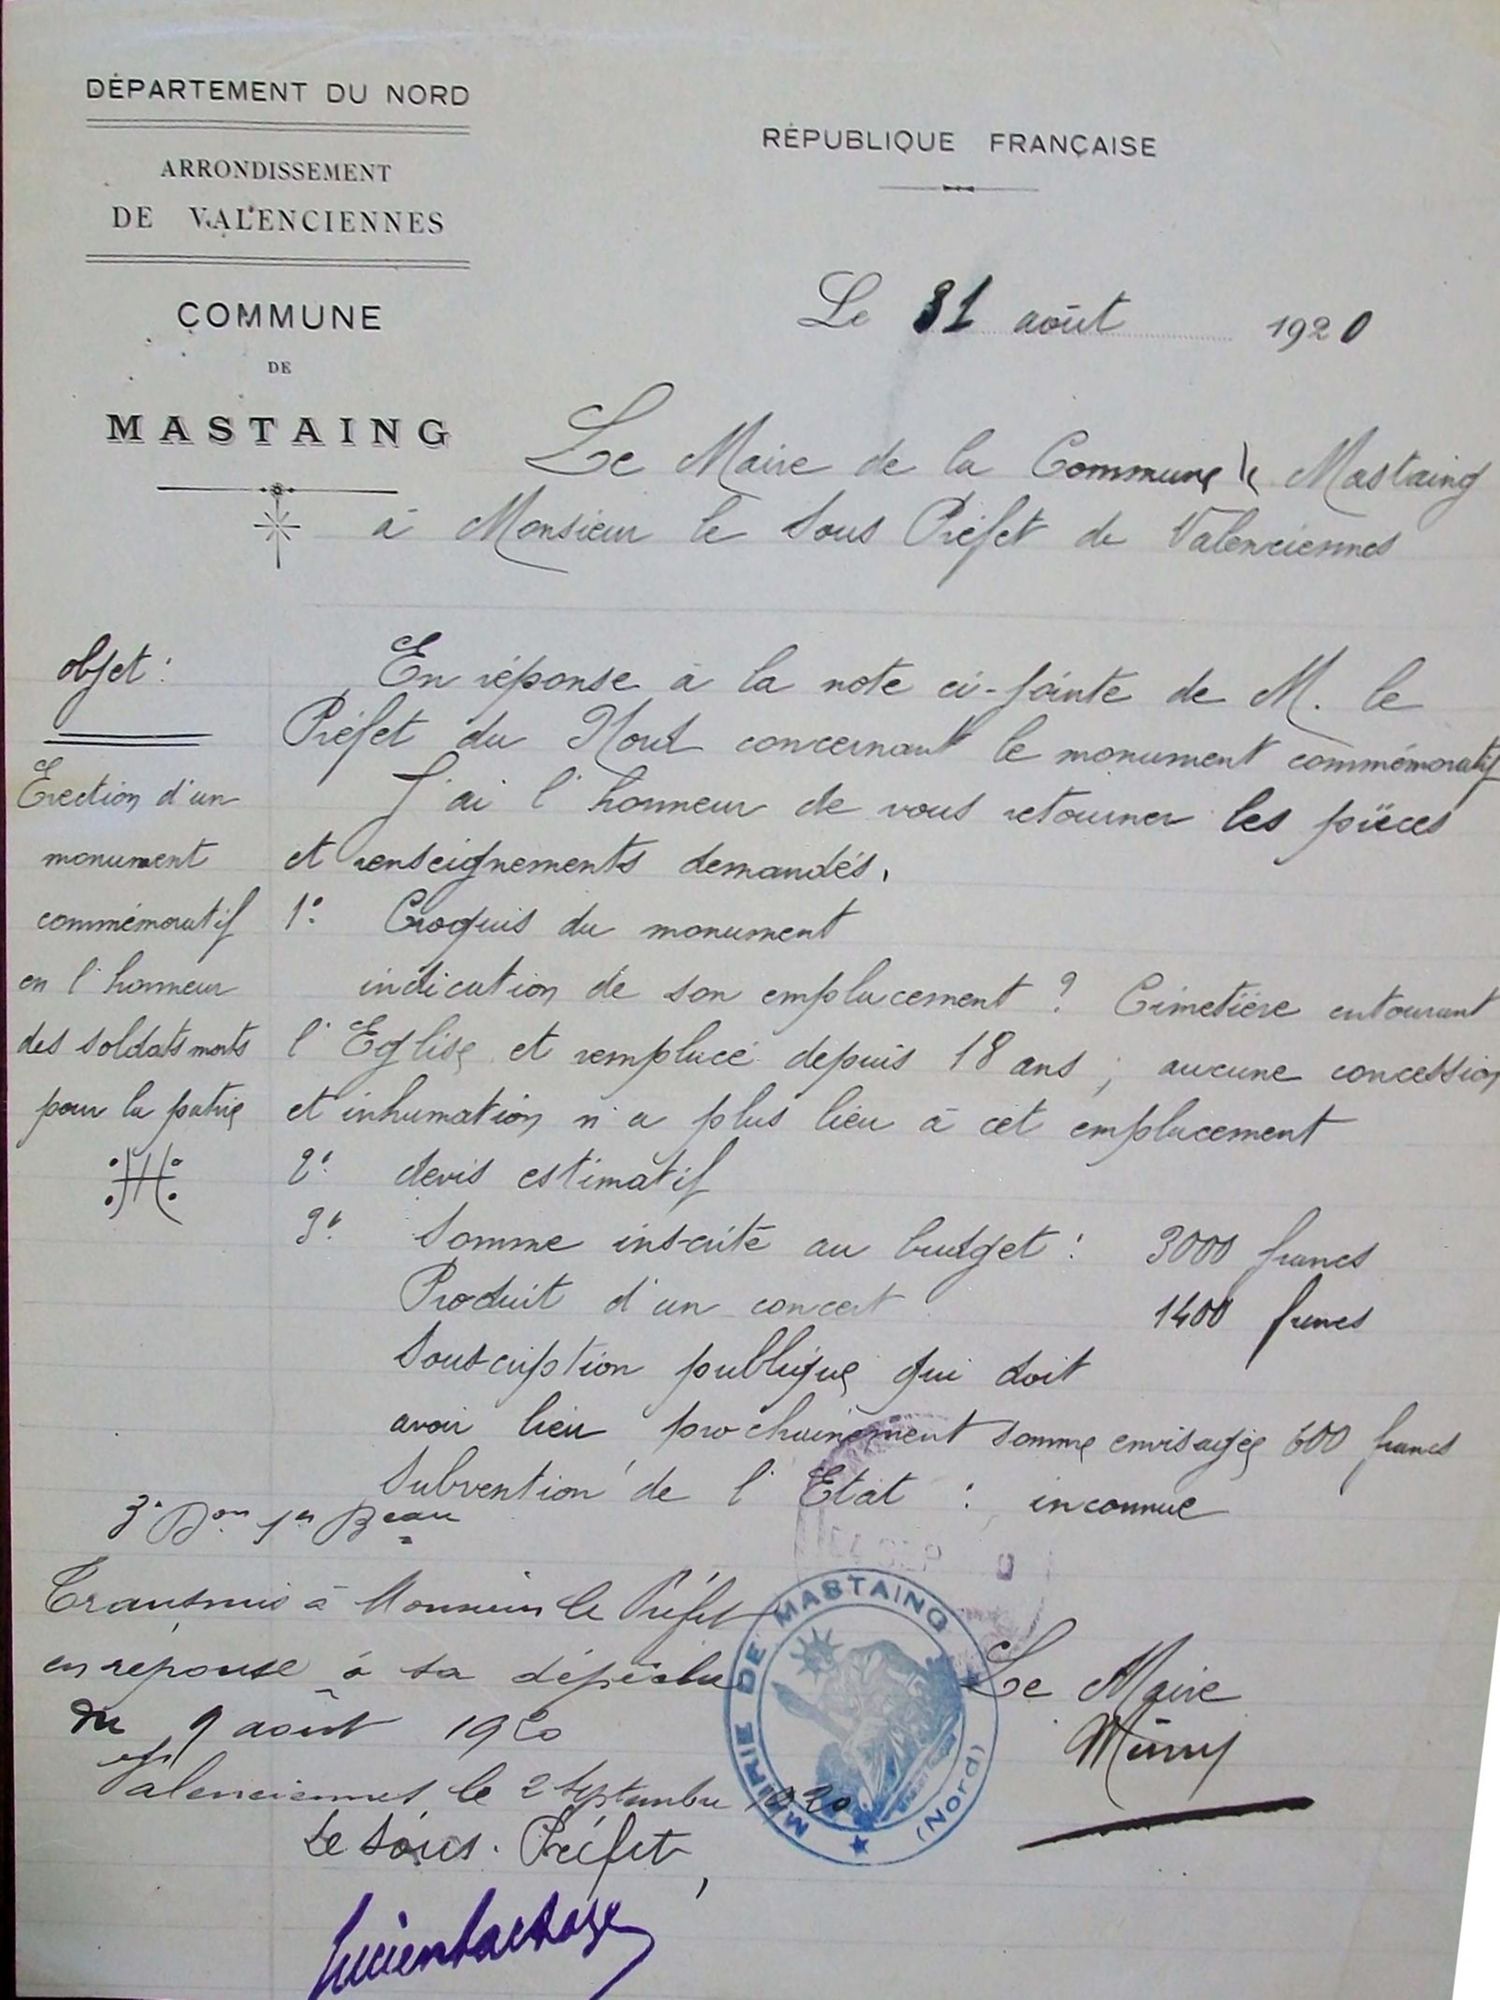 DÉPARTEMENT DU NORD
ARRONDISSEMENT
DE VALENCIENNES
COMMUNE
DE
MASTAING
RÉPUBLIQUE FRANÇAISE
Le 31 août 1920
Le Maire de la Commune de Mastaing
à Monsieur le Sous Préfet de Valenciennes
objet :
Erection d'un
monument
commémoratif
en l'honneur
des soldats morts
pour la patrie
En réponse à la note ci-jointe de M. le
Préfet du Nord concernant le monument commémoratif
J'ai l'honneur de vous retourner les pièces
et renseignements demandés.
1° Croquis du monument
indication de son emplacement ? Cimetière entourant
l'Eglise et remplacé depuis 18 ans ; aucune concession
et inhumation n'a plus lieu à cet emplacement
2° devis estimatif
3° Somme inscrite au budget : 3000 francs
Produit d'un concert 1400 francs
Souscription publique qui doit
avoir lieu prochainement somme envisagée 600 francs
Subvention de l'Etat : inconnue
3e Don 1er Beau
Transmis à Monsieur le Préfet
en réponse à sa dépêche
du 9 août 1920
Valenciennes le 2 Septembre 1920
Le Sous-Préfet,
Le Maire
MAIRIE DE MASTAING
(Nord)